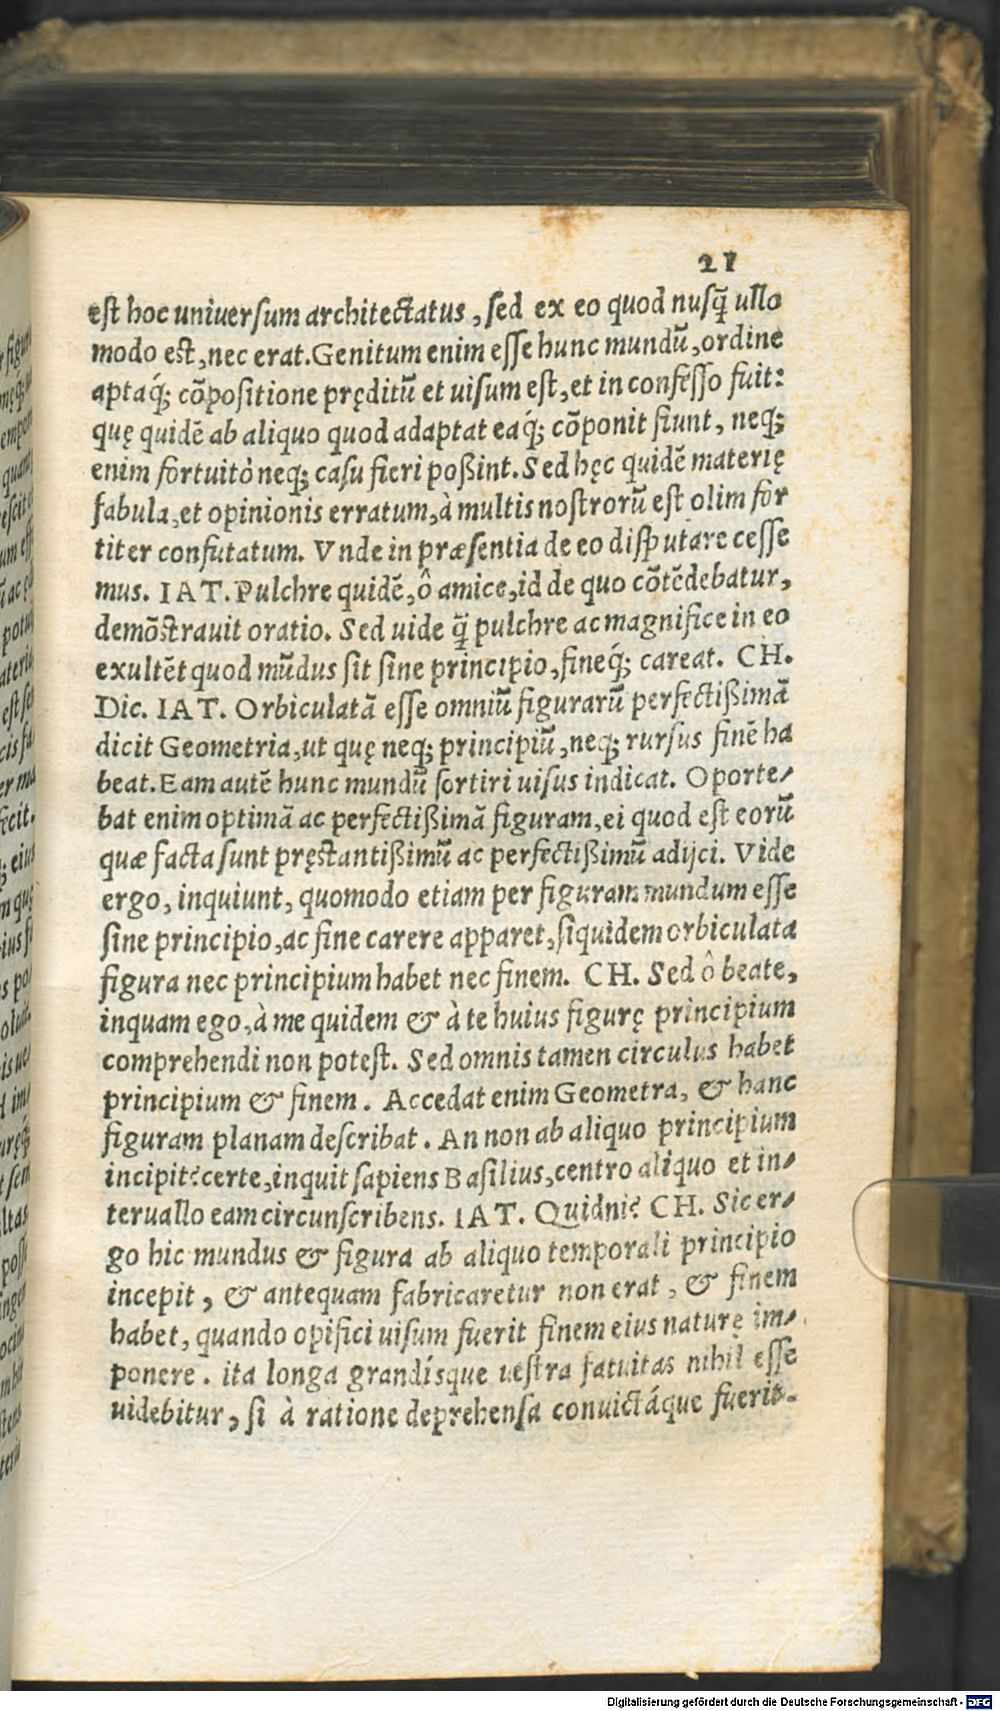 21
est hoc uniuersum architectatus, sed ex eo quod nusq̃ ullo
modo est, nec erat. Genitum enim esse hunc mundũ, ordine
aptaq́; cõpositione pręditũ et uisum est, et in confesso fuit:
quę quidẽ ab aliquo quod adaptat eaq́; cõponit fiunt, neq;
enim fortuitò neq; casu fieri poßint. Sed hęc quidẽ materię
fabula, et opinionis erratum, à multis nostrorũ est olim for
titer confutatum. Vnde in præsentia de eo disputare cesse
mus. IAT. Pulchre quidẽ, ô amice, id de quo cõtẽdebatur,
demõstrauit oratio. Sed uide q̃ pulchre ac magnifice in eo
exultẽt quod mũdus sit sine principio, fineq́; careat. CH.
Dic. IAT. Orbiculatã esse omniũ figurarũ perfectißimã
dicit Geometria, ut quę neq; principiũ, neq; rursus finẽ ha
beat. Eam autẽ hunc mundũ sortiri uisus indicat. Oporte-
bat enim optimã ac perfectißimã figuram, ei quod est eorũ
quæ facta sunt pręstantißimũ ac perfectißimũ adijci. Vide
ergo, inquiunt, quomodo etiam per figuram mundum esse
sine principio, ac fine carere apparet, siquidem orbiculata
figura nec principium habet nec finem. CH. Sed ô beate,
inquam ego, à me quidem & à te huius figurę principium
comprehendi non potest. Sed omnis tamen circulus habet
principium & finem. Accedat enim Geometra, & hanc
figuram planam describat. An non ab aliquo principium
incipit? certe, inquit sapiens Basilius, centro aliquo et in-
teruallo eam circunscribens. IAT. Quidni? CH. Sic er-
go hic mundus & figura ab aliquo temporali principio
incepit, & antequam fabricaretur non erat, & finem
habet, quando opifici uisum fuerit finem eius naturę im-
ponere. ita longa grandísque uestra fatuitas nihil esse
uidebitur, si à ratione deprehensa conuictáque fuerit.
Digitalisierung gefördert durch die Deutsche Forschungsgemeinschaft - DFG